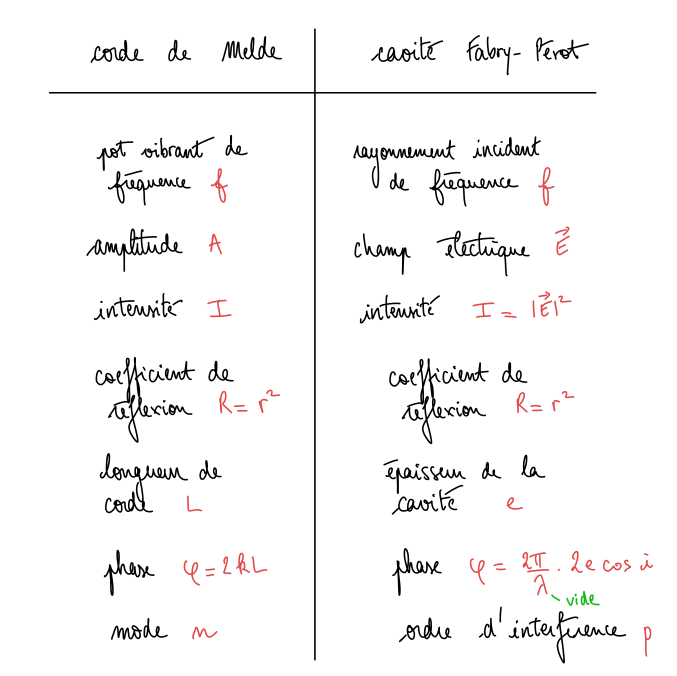 corde de Melde
cavité Fabry-Pérot
pot vibrant de
fréquence f
rayonnement incident
de fréquence f
amplitude A
champ électrique E⃗
intensité I
intensité I = |E⃗|²
coefficient de
réflexion R = r²
coefficient de
réflexion R = r²
longueur de
corde L
épaisseur de la
cavité e
phase φ = 2kL
phase φ = 2π/λ . 2e cos i
vide
mode n
ordre d'interférence p